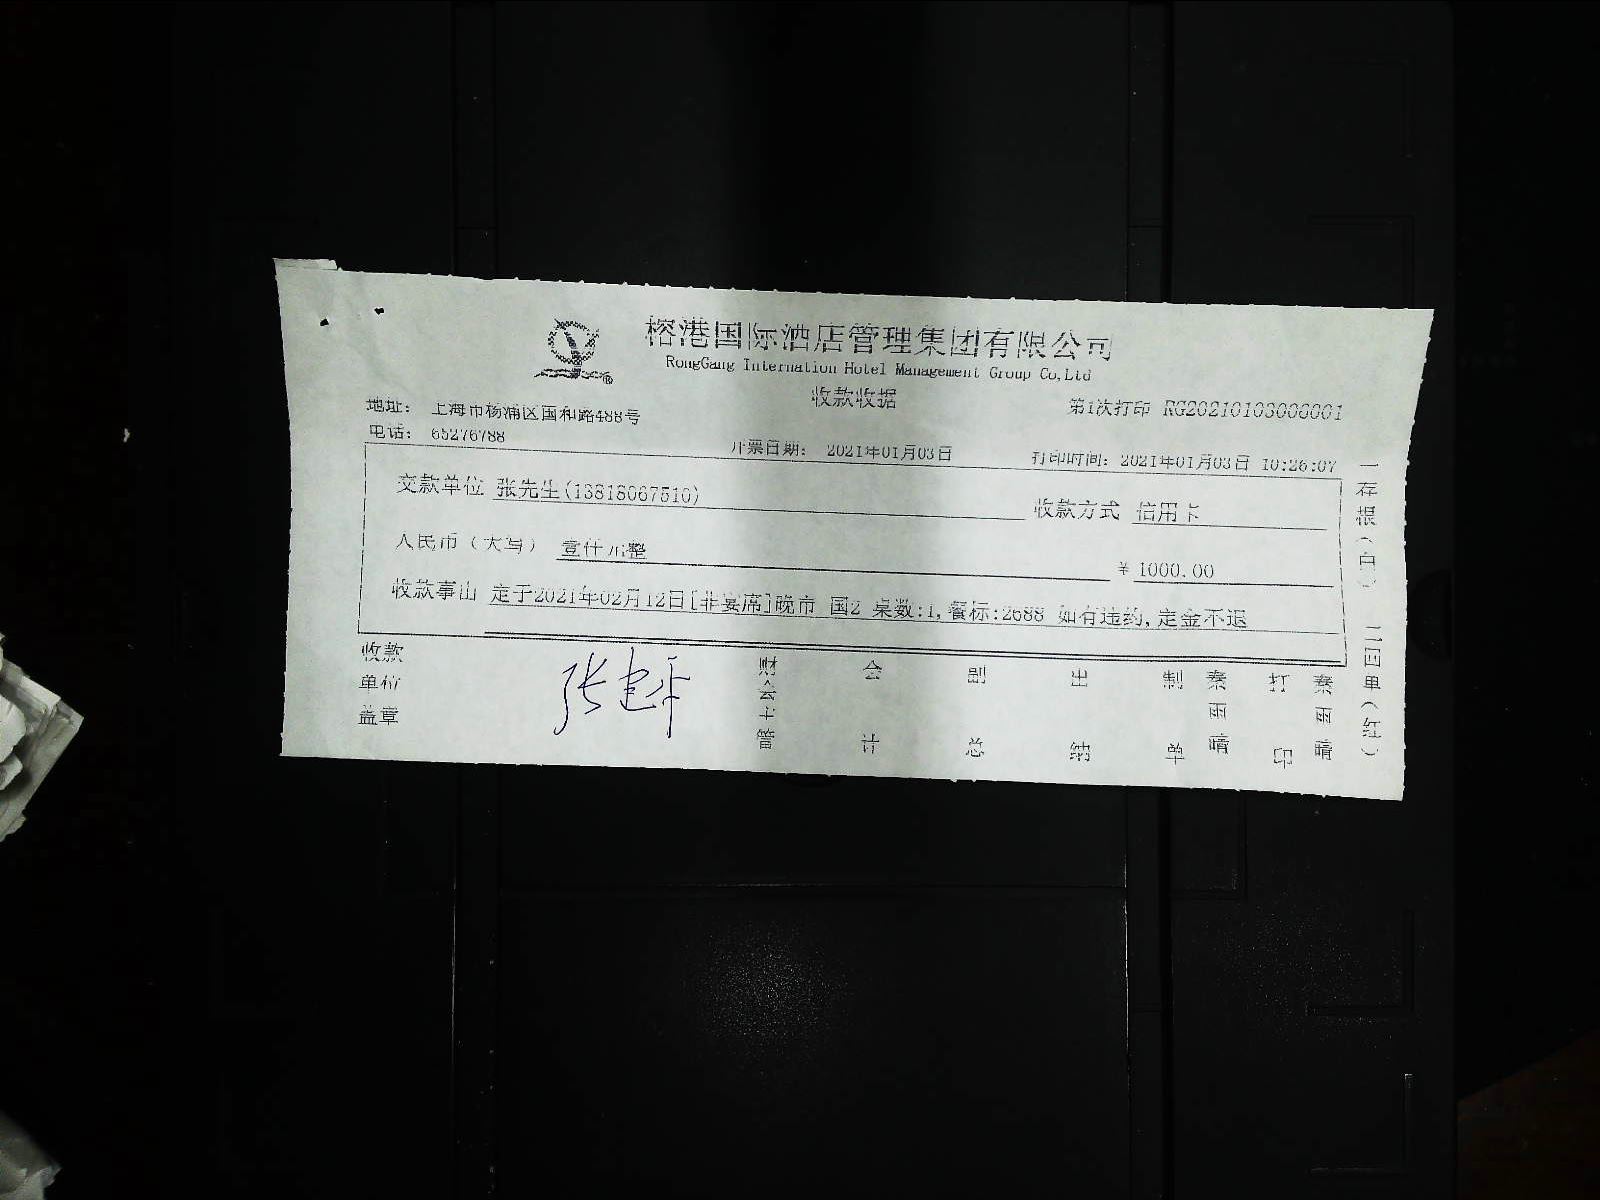 榕港国际酒店管理集团有限公司
RongGang Internation Hotel Management Group Co,Ltd
收款收据
地址： 上海市杨浦区国和路488号
第1次打印 RG20210103000001
电话： 65276788
开票日期： 2021年01月03日
打印时间： 2021年01月03日 10:26:07
交款单位 张先生(13818067510)
收款方式 信用卡
人民币（大写） 壹仟元整
¥ 1000.00
收款事由 定于2021年02月12日[非宴席]晚市 国2 桌数:1,餐标:2688 如有违约,定金不退
收款单位盖章
张建平
财会主管
会计
副总
出纳
制单
秦雨晴
打印
秦雨晴
一存根（白） 二四单（红）